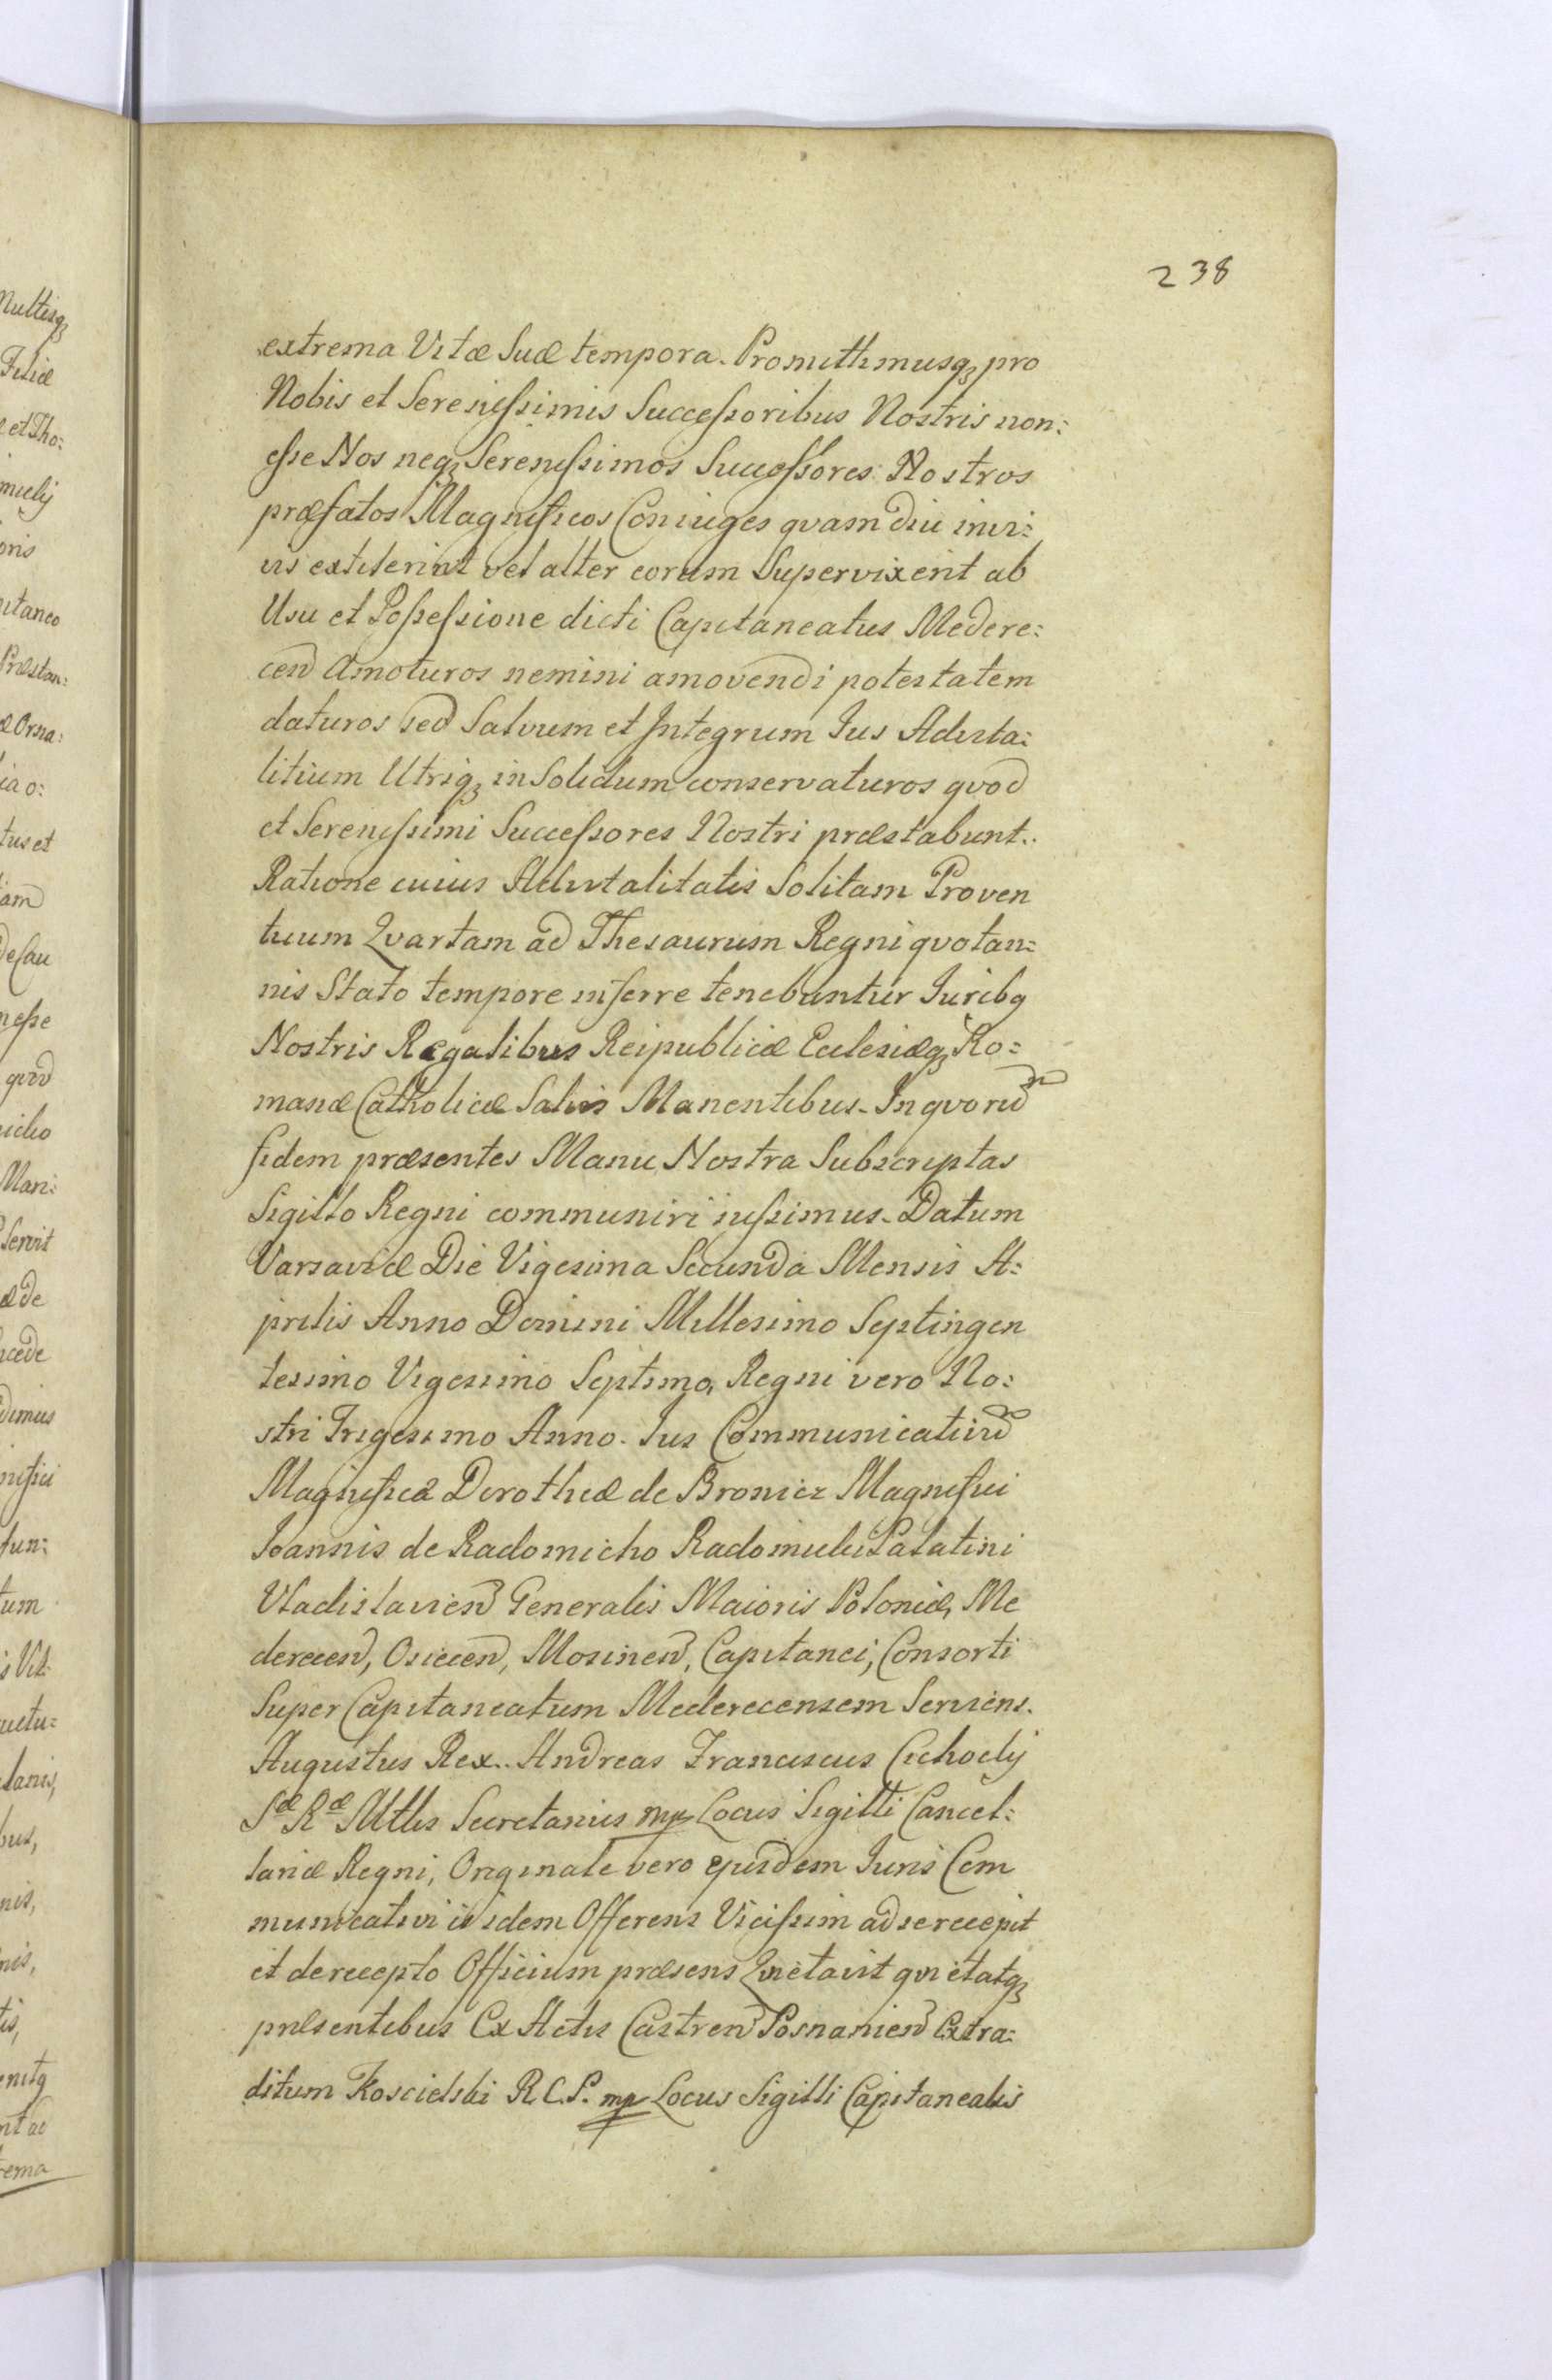 238
extrema Vitæ Suæ tempora. Promittimusq₃ pro
Nobis et Serenissimis Successoribus Nostris non:
esse Nos neq₃ Serenissimos Successores Nostros
præfatos Magnificos Coniuges qvam diu in vi:
vis extiterint vel alter eorum Supervixerit ab
Usu et Possessione dicti Capitaneatus Medere:
cen̄ Amoturos nemini amovendi potestatem
daturos sed Salvum et Integrum Ius Advita:
litium Utriq₃ in Solidum conservaturos qvod
et Serenissimi Successores Nostri præstabunt.
Ratione cuius Advitalitatis Solitam Proven
tuum Qvartam ad Thesaurum Regni qvotan:
nis Stato tempore inferre tenebuntur Juribq
Nostris Regalibus Reipublicæ Ecclesiæq₃ Ro:
manæ Catholicæ Salvis Manentibus. In qvorū
fidem præsentes Manu Nostra Subscriptas
Sigillo Regni communiri iussimus. Datum
Varsaviæ Die Vigesima Secunda Mensis A:
prilis Anno Domini Millesimo Septingen
tesimo Vigesimo Septimo, Regni vero No:
stri Trigesimo Anno. Ius Communicativū
Magnificæ Dorotheæ de Bronicz Magnifici
Joannis de Radomicho Radomicki Palatini
Vladislavien̄ Generalis Maioris Poloniæ, Me
derecen̄, Osiecen̄, Mosinen̄, Capitanei, Consorti
Super Capitaneatum Mederecensem Serviens.
Augustus Rex.. Andreas Franciscus Cichocky
Sæ Ræ Mttis Secretarius mp Locus Sigilli Cancel:
lariæ Regni, Originale vero eiusdem Juris Com
municativi iisdem Offerens Vicissim ad se recepit
et de recepto Officium præsens Qvietavit qvietatq₃
præsentibus Ex Actis Castren̄ Posnanien̄ Extra:
ditum Koscielski R. C. P. mp Locus Sigilli Capitanealis